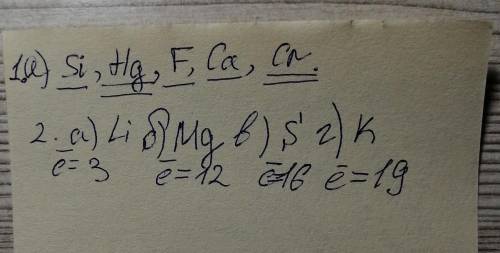 1.а) Si, Hg, F, Ca, Cr.
2. а) Li б) Mg в) S г) K
ē=3 ē=12 ē=16 ē=19